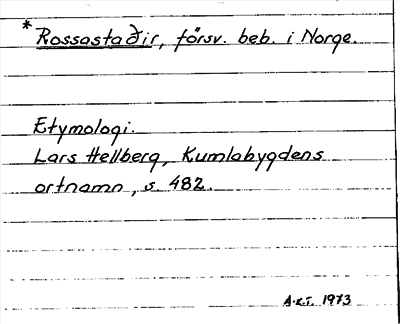 *Rossastaðir, försv. beb. i Norge.
Etymologi.
Lars Hellberg, Kumlabygdens
ortnamn, s. 482.
1973